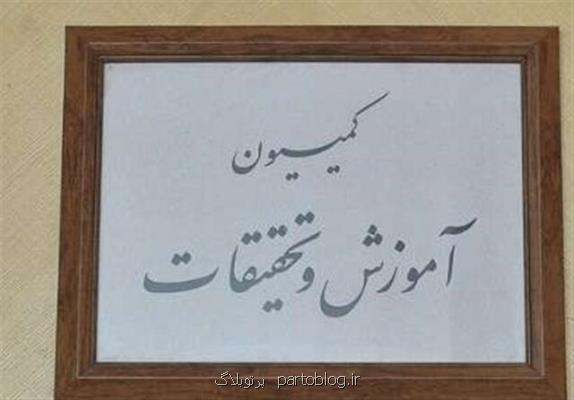 کمیسیون
آموزش و تحقیقات
پرتوبلاگ partoblog.ir